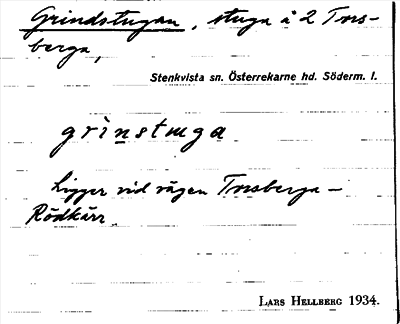 Grindstugan, stuga å 2 Tors-
berga,
Stenkvista sn. Österrekarne hd. Söderm. l.
grìnstuga
Ligger vid vägen Torsberga -
Rödkärr.
LARS HELLBERG 1934.